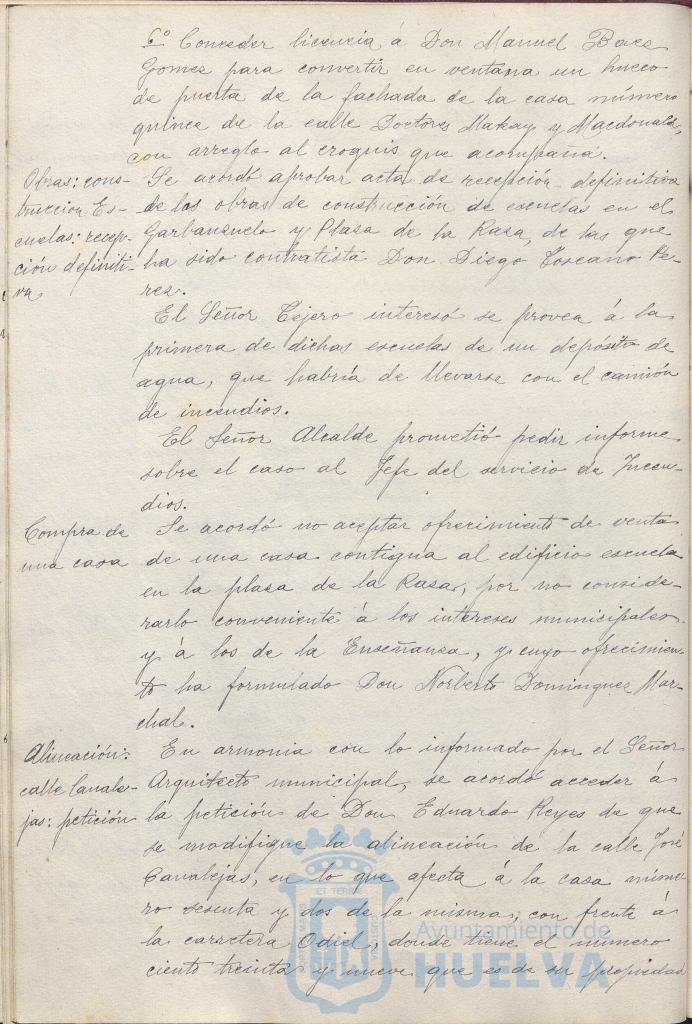 6º Conceder licencia á Don Manuel Baez
Gomez para convertir en ventana un hueco
de puerta de la fachada de la casa número
quince de la calle Doctores Makay y Macdonald,
con arreglo al croquis que acompaña.
Obras: cons-
trucción Es-
cuelas: recep-
ción definiti-
va
Se acordó aprobar acta de recepción definitiva
de las obras de construcción de escuelas en el
Garbanzuelo y Plaza de la Rasa, de las que
ha sido contratista Don Diego Toscano Pe-
rez.
El Señor Tejero interesó se provea á la
primera de dichas escuelas de un depósito de
agua, que habría de llevarse con el camión
de incendios.
El Señor Alcalde prometió pedir informe
sobre el caso al Jefe del servicio de Incen-
dios.
Compra de
una casa
Se acordó no aceptar ofrecimiento de venta
de una casa contigua al edificio escuela
en la plaza de la Rasa, por no conside-
rarlo conveniente á los intereses municipales
y á los de la Enseñanza, y cuyo ofrecimien-
to ha formulado Don Norberto Dominguez Mar-
chal.
Alineación:
calle Canale-
jas: petición
En armonia con lo informado por el Señor
Arquitecto municipal, se acordó acceder á
la petición de Don Eduardo Reyes de que
se modifique la alineación de la calle José
Canalejas, en lo que afecta á la casa núme-
ro sesenta y dos de la misma, con frente á
la carretera Odiel, donde tiene el numero
ciento treinta y nueve que es de su propiedad
Ayuntamiento de
HUELVA